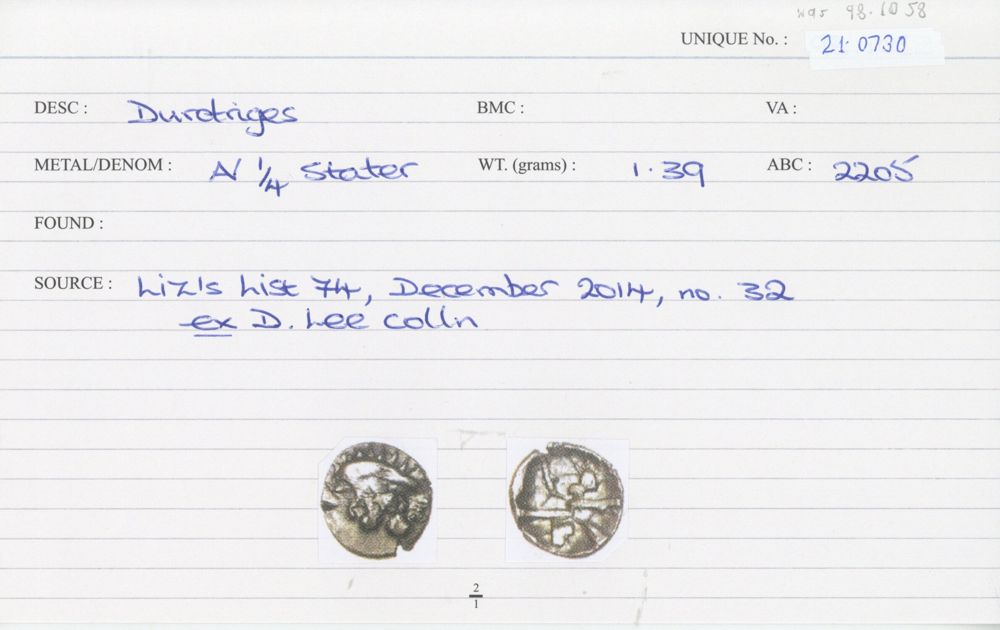 was 98.1058
UNIQUE No. : 21.0730
DESC : Durotriges BMC : VA :
METAL/DENOM : A/ 1/4 Stater WT. (grams) : 1.39 ABC : 2205
FOUND :
SOURCE : Liz's List 74, December 2014, no. 32
ex D. Lee colln
2
1